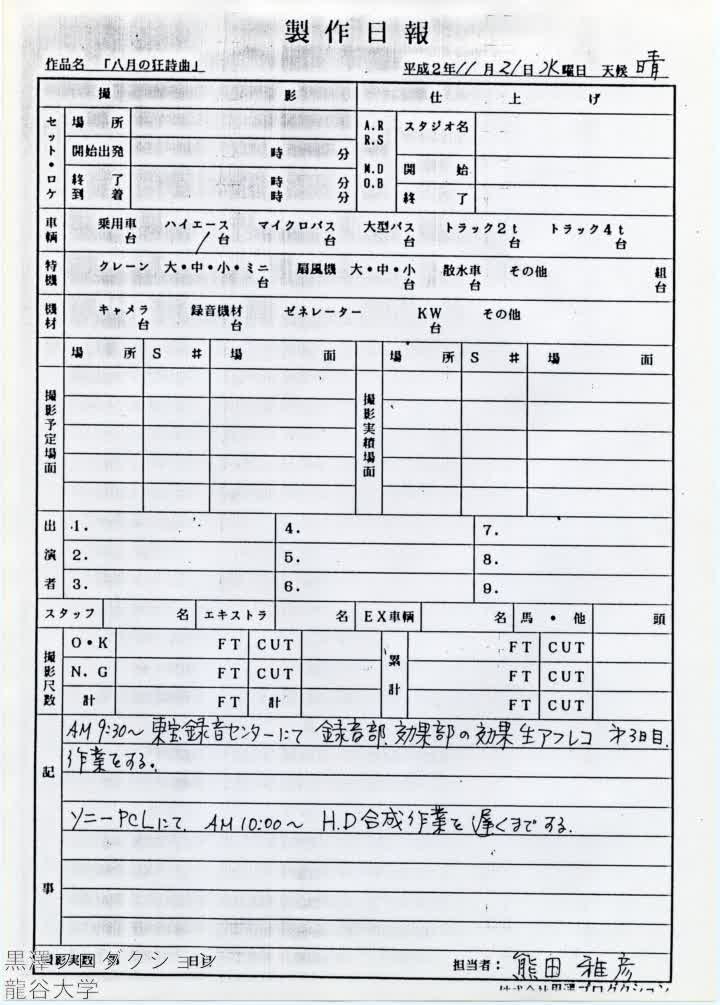 製作日報
作品名 「八月の狂詩曲」 平成2年11月21日水曜日 天候 晴
撮 影 仕 上 げ
セット・ロケ 場 所 A.R R.S スタジオ名
開始出発 時 分 M.D O.B 開 始
終 了 時 分 終 了
到 着 時 分
車輌 乗用車 台 ハイエース 1台 マイクロバス 台 大型バス 台 トラック2t 台 トラック4t 台
特機 クレーン 大・中・小・ミニ 台 扇風機 大・中・小 台 散水車 台 その他 組 台
機材 キャメラ 台 録音機材 台 ゼネレーター KW 台 その他
場 所 S # 場 面 場 所 S # 場 面
撮影予定場面 撮影実績場面
出演者 1. 4. 7.
2. 5. 8.
3. 6. 9.
スタッフ 名 エキストラ 名 EX車輌 名 馬・他 頭
撮影尺数 O・K FT CUT 累計 FT CUT
N.G FT CUT FT CUT
計 FT 計 FT CUT
記事
AM 9:30~ 東宝録音センターにて 録音部、効果部の効果 生アフレコ 第3日目.
作業をする.
ソニーPCLにて. AM 10:00~ H.D合成作業を 遅くまでする.
担当者: 熊田 雅彦
株式会社黒澤プロダクション
黒澤プロダクション
龍谷大学